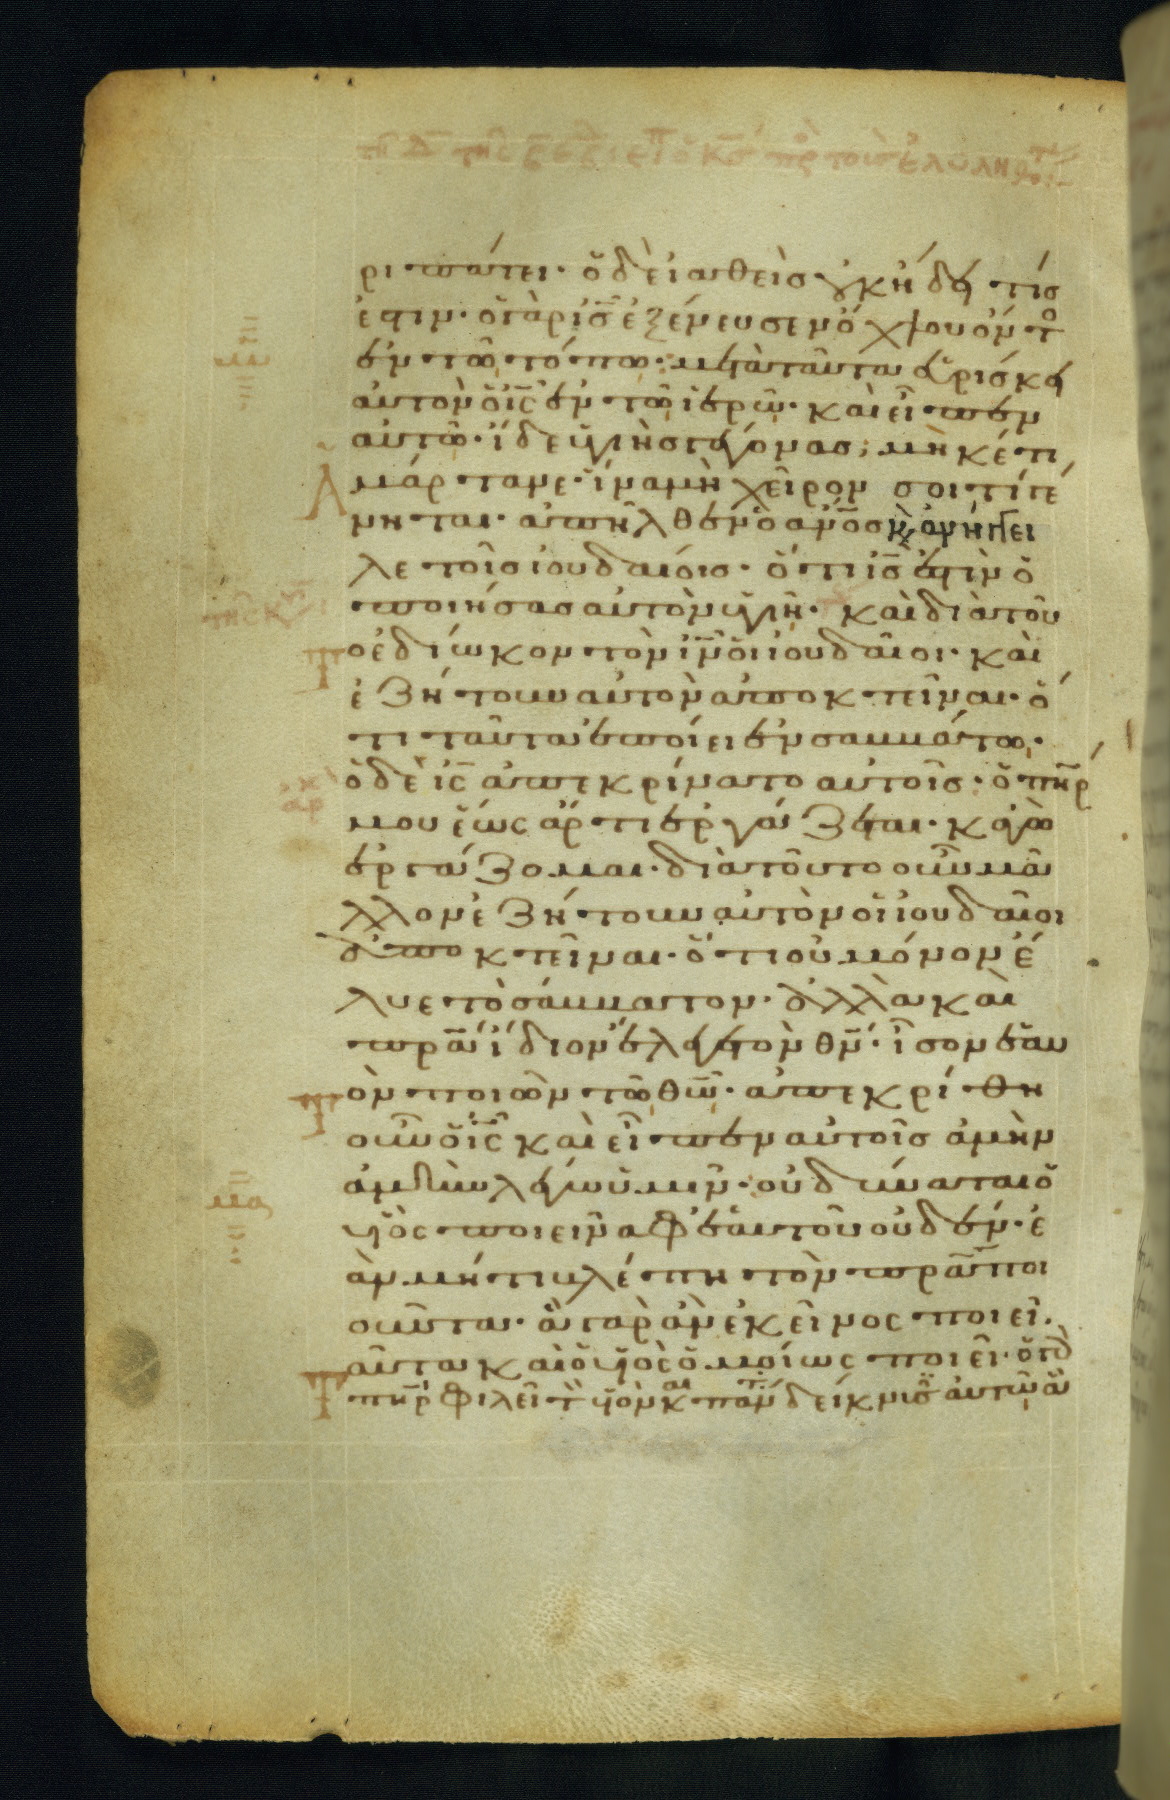 ριπάτει· ὁ δὲ ἰαθεὶς οὐκ ᾔδει τίς
ἐστιν· ὁ γὰρ ις ἐξένευσεν ὄχλου ὄντος
ἐν τῷ τόπῳ· μετὰ ταῦτα εὑρίσκει
αὐτὸν ὁ ις ἐν τῷ ἱερῷ· καὶ εἶπεν
αὐτῷ· ἴδε ὑγιὴς γέγονας· μηκέτι
ἁμάρτανε· ἵνα μὴ χεῖρον σοι τί γέ
νηται· ἀπῆλθεν ὁ ανος κὶ ἀνήγγει
λε τοῖς ἰουδαίοις· ὅτι ις ἐστὶν ὁ
ποιήσας αὐτὸν ὑγιῆ· καὶ διὰ τοῦ
το ἐδίωκον τὸν ιν οἱ ἰουδαῖοι· καὶ
ἐζήτουν αὐτὸν ἀποκτεῖναι· ὅ
τι ταῦτα ἐποίει ἐν σαββάτῳ·
ὁ δὲ ις ἀπεκρίνατο αὐτοῖς· ὁ πηρ
μου ἕως ἄρτι ἐργάζεται· κἀγὼ
ἐργάζομαι· διὰ τοῦτο οὖν μᾶ
λλον ἐζήτουν αὐτὸν οἱ ἰουδαῖοι
ἀποκτεῖναι· ὅτι οὐ μόνον ἔ
λυε τὸ σάββατον· ἀλλὰ καὶ
πρα ἴδιον ἔλεγε τὸν θν· ἴσον ἑαυ
ὸν ποιῶν τῷ θω· ἀπεκρίθη
οὖν ὁ ις καὶ εἶπεν αὐτοῖς ἀμὴν
ἀμὴν λέγω ὑμῖν· οὐ δύναται ὁ
υἱὸς ποιεῖν ἀφ ἑαυτοῦ οὐδέν· ἐ
ὰν μή τι βλέπῃ τὸν πρα ποι
οῦντα· ἃ γὰρ ἂν ἐκεῖνος ποιεῖ·
αῦτα καὶ ὁ υἱὸς ὁμοίως ποιεῖ· ὁ γὰρ
πηρ φιλεῖ τὸν υἱὸν καὶ πάντα δείκνυσιν αὐτῷ ἃ